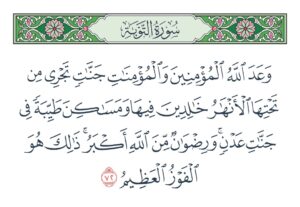 سُورَةُ التَّوْبَةِ
وَعَدَ اللَّهُ الْمُؤْمِنِينَ وَالْمُؤْمِنَاتِ جَنَّاتٍ تَجْرِي مِن
تَحْتِهَا الْأَنْهَارُ خَالِدِينَ فِيهَا وَمَسَاكِنَ طَيِّبَةً فِي
جَنَّاتِ عَدْنٍ ۚ وَرِضْوَانٌ مِّنَ اللَّهِ أَكْبَرُ ۚ ذَٰلِكَ هُوَ
الْفَوْزُ الْعَظِيمُ ٧٢